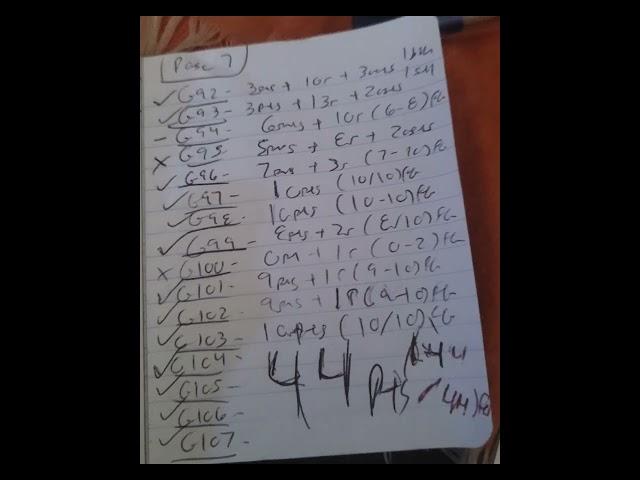 Page 7
✓ G92 - 3pts + 10r + 3 1
✓ G93 - 3pts + 13r + 2 1
- G94 - 6pts + 10r (6-8) FG
x G95 - 5pts + 8r + 2
✓ G96 - 7pts + 3r (7-10) FG
✓ G97 - 10pts (10/10) FG
✓ G98 - 10pts (10-10) FG
✓ G99 - 8pts + 2r (8/10) FG
x G100 - 0pts + 1r (0-2) FG
✓ G101 - 9pts + 1r (9-10) FG
✓ G102 - 9pts + 1r (9-10) FG
✓ G103 - 10pts (10/10) FG
✓ G104 -
✓ G105 - 44 pts
✓ G106 - 44) FG
✓ G107 -